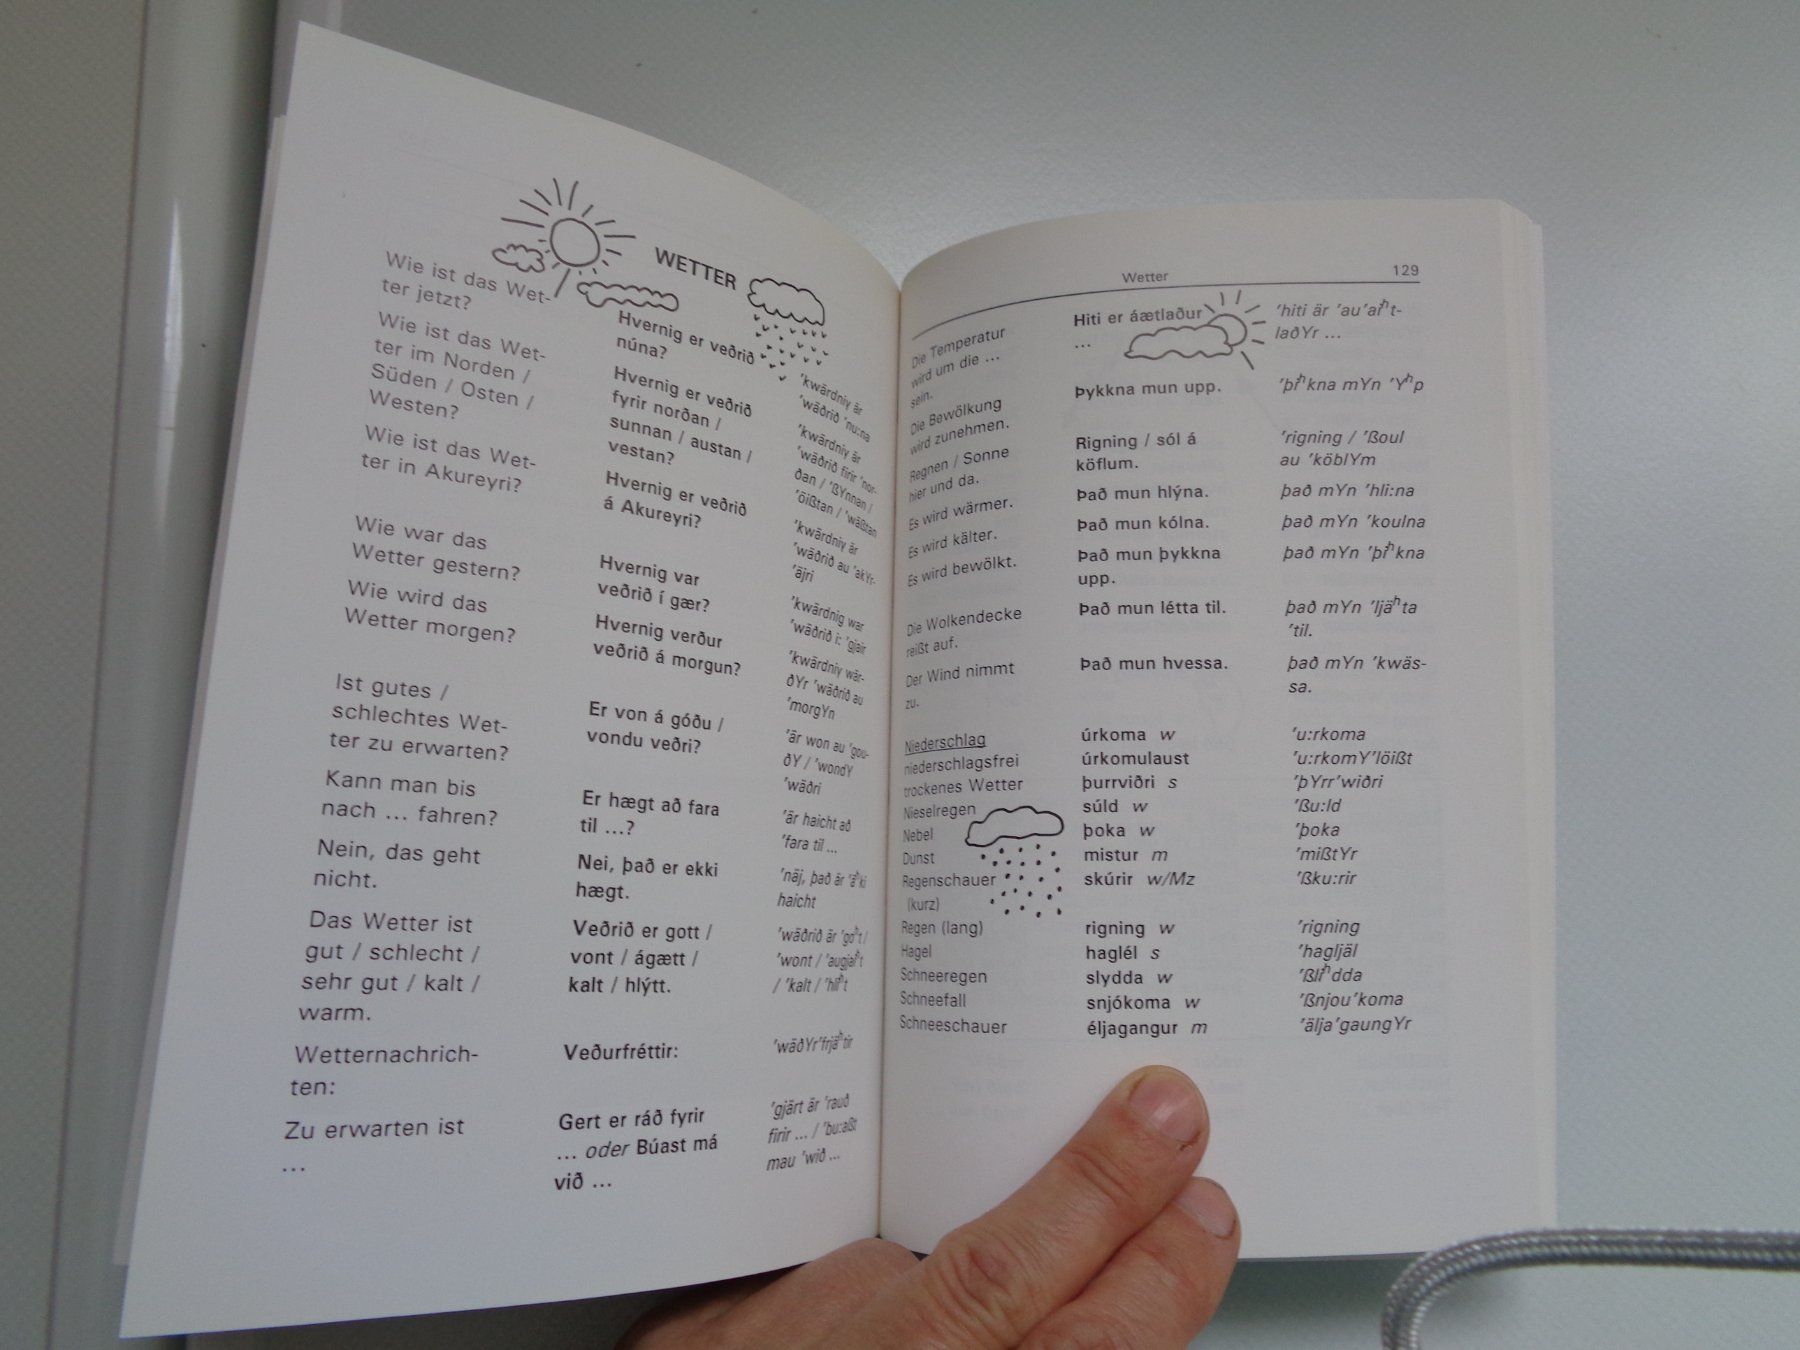 WETTER
Wie ist das Wet-
ter jetzt?
Hvernig er veðrið
núna?
'kwärdniy är
'wäðrið 'nu:na
Wie ist das Wet-
ter im Norden /
Süden / Osten /
Westen?
Hvernig er veðrið
fyrir norðan /
sunnan / austan /
vestan?
'kwärdniy är
'wäðrið firir 'nor-
ðan / 'ßYnnan /
'öißtan / 'wäßtan
Wie ist das Wet-
ter in Akureyri?
Hvernig er veðrið
á Akureyri?
'kwärdniy är
'wäðrið au 'akYr-
'äjri
Wie war das
Wetter gestern?
Hvernig var
veðrið í gær?
'kwärdnig war
'wäðrið i: 'gjair
Wie wird das
Wetter morgen?
Hvernig verður
veðrið á morgun?
'kwärdniy wär-
ðYr 'wäðrið au
'morgYn
Ist gutes /
schlechtes Wet-
ter zu erwarten?
Er von á góðu /
vondu veðri?
'är won au 'gou-
ðY / 'wondY
'wäðri
Kann man bis
nach ... fahren?
Er hægt að fara
til ...?
'är haicht að
'fara til ...
Nein, das geht
nicht.
Nei, það er ekki
hægt.
'näj, það är 'äʰki
haicht
Das Wetter ist
gut / schlecht /
sehr gut / kalt /
warm.
Veðrið er gott /
vont / ágætt /
kalt / hlýtt.
'wäðrið är 'goʰt /
'wont / 'augjaiʰt
/ 'kalt / 'hliʰt
Wetternachrich-
ten:
Veðurfréttir:
'wäðYr'frjäʰtir
Zu erwarten ist
...
Gert er ráð fyrir
... oder Búast má
við ...
'gjärt är 'rauð
firir ... / 'bu:aßt
mau 'wið ...
Wetter 129
Die Temperatur
wird um die ...
sein.
Hiti er áætlaður
...
'hiti är 'au'aiʰt-
laðYr ...
Die Bewölkung
wird zunehmen.
Þykkna mun upp.
'þiʰkna mYn 'Yʰp
Regnen / Sonne
hier und da.
Rigning / sól á
köflum.
'rigning / 'ßoul
au 'köblYm
Es wird wärmer.
Það mun hlýna.
það mYn 'hli:na
Es wird kälter.
Það mun kólna.
það mYn 'koulna
Es wird bewölkt.
Það mun þykkna
upp.
það mYn 'þiʰkna
Die Wolkendecke
reißt auf.
Það mun létta til.
það mYn 'ljäʰta
'til.
Der Wind nimmt
zu.
Það mun hvessa.
það mYn 'kwäs-
sa.
Niederschlag úrkoma w 'u:rkoma
niederschlagsfrei úrkomulaust 'u:rkomY'löißt
trockenes Wetter þurrviðri s 'þYrr'wiðri
Nieselregen súld w 'ßu:ld
Nebel þoka w 'þoka
Dunst mistur m 'mißtYr
Regenschauer skúrir w/Mz 'ßku:rir
(kurz)
Regen (lang) rigning w 'rigning
Hagel haglél s 'hagljäl
Schneeregen slydda w 'ßliʰdda
Schneefall snjókoma w 'ßnjou'koma
Schneeschauer éljagangur m 'älja'gaungYr